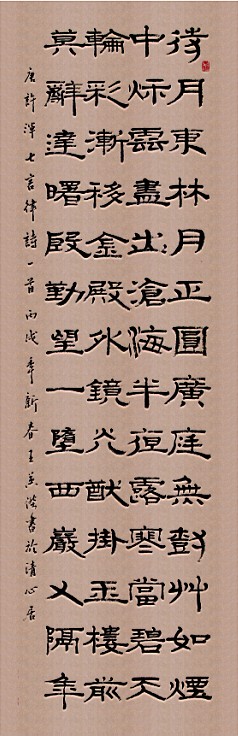 待月東林月正圓廣庭無樹艸如煙
中秋雲盡出滄海半夜露寒當碧天
輪彩漸移金殿外鏡光猷掛玉樓前
莫辭達曙殷勤望一墮西巖又隔年
唐許渾七言律詩一首丙戌年新春王書於清心居